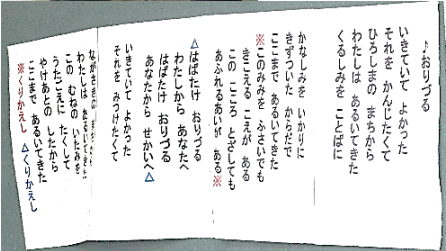 ♪おりづる
いきていて よかった
それを かんじたくて
ひろしまの まちから
わたしは あるいてきた
くるしみを ことばに
かなしみを いかりに
きずついた からだで
ここまで あるいてきた
※このみみを ふさいでも
きこえる こえが ある
この こころ とざしても
あふれるあいが ある※
△はばたけ おりづる
わたしから あなたへ
はばたけ おりづる
あなたから せかいへ△
いきていて よかった
それを みつけたくて
ながさきの まちから
わたしは あるいてきた
この むねの いたみを
うたごえに たくして
やけあとの したから
ここまで あるいてきた
※くりかえし △くりかえし